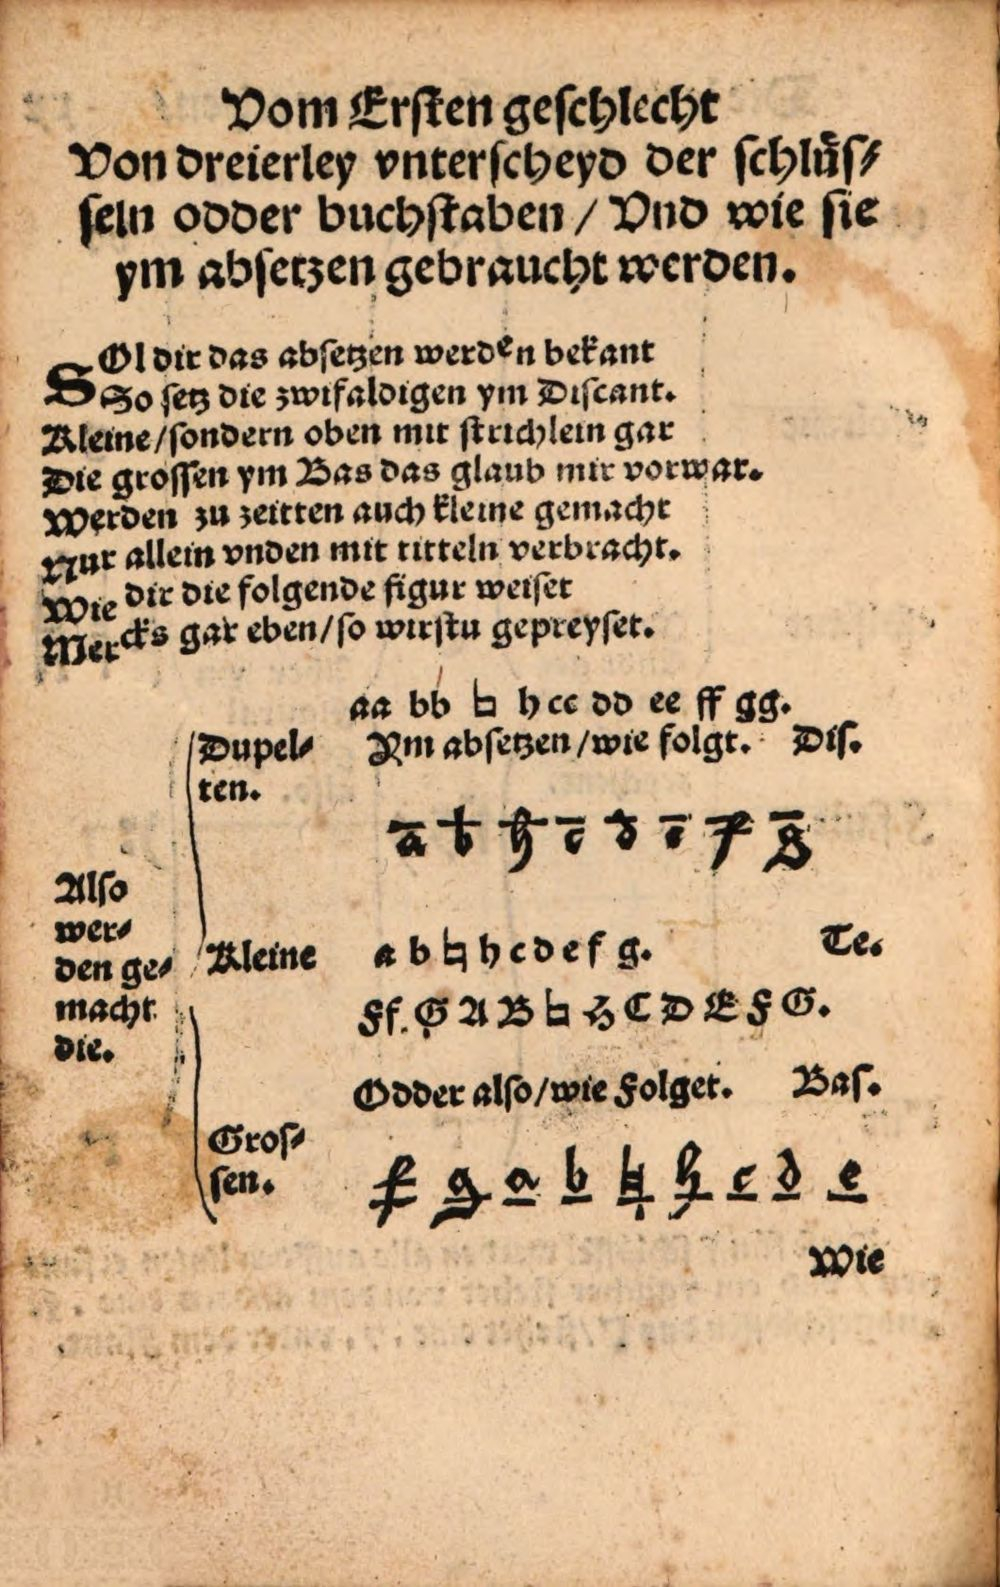 Vom Ersten geschlecht
Von dreierley vnterscheyd der schlüs⸗
seln odder buchstaben / Vnd wie sie
ym absetzen gebraucht werden.
SOl dir das absetzen werden bekant
So setz die zwifaldigen ym Discant.
Kleine/sondern oben mit strichlein gar
Die grossen ym Bas das glaub mir vorwar.
Werden zu zeitten auch kleine gemacht
Nur allein vnden mit titteln verbracht.
Wie dir die folgende figur weiset
Mercks gar eben/so wirstu gepreyset.
aa bb ♮ h cc dd ee ff gg.
Dupel⸗
ten.
Ym absetzen/wie folgt. Dis.
a̅ b̅ h̅ c̅ d̅ e̅ f̅ g̅
Also
wer⸗
den ge⸗
macht
die.
Kleine a b ♮ h c d e f g. Te.
Ff. G A B ♮ H C D E F G.
Odder also/wie Folget. Bas.
Gros⸗
sen.
f̲ g̲ a̲ b̲ ♮̲ h̲ c̲ d̲ e̲
Wie